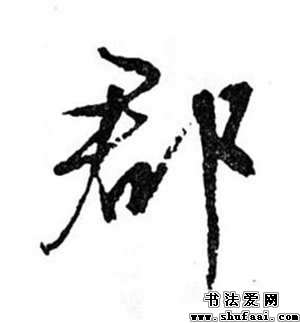 郡
书法爱网
www.shufaai.com